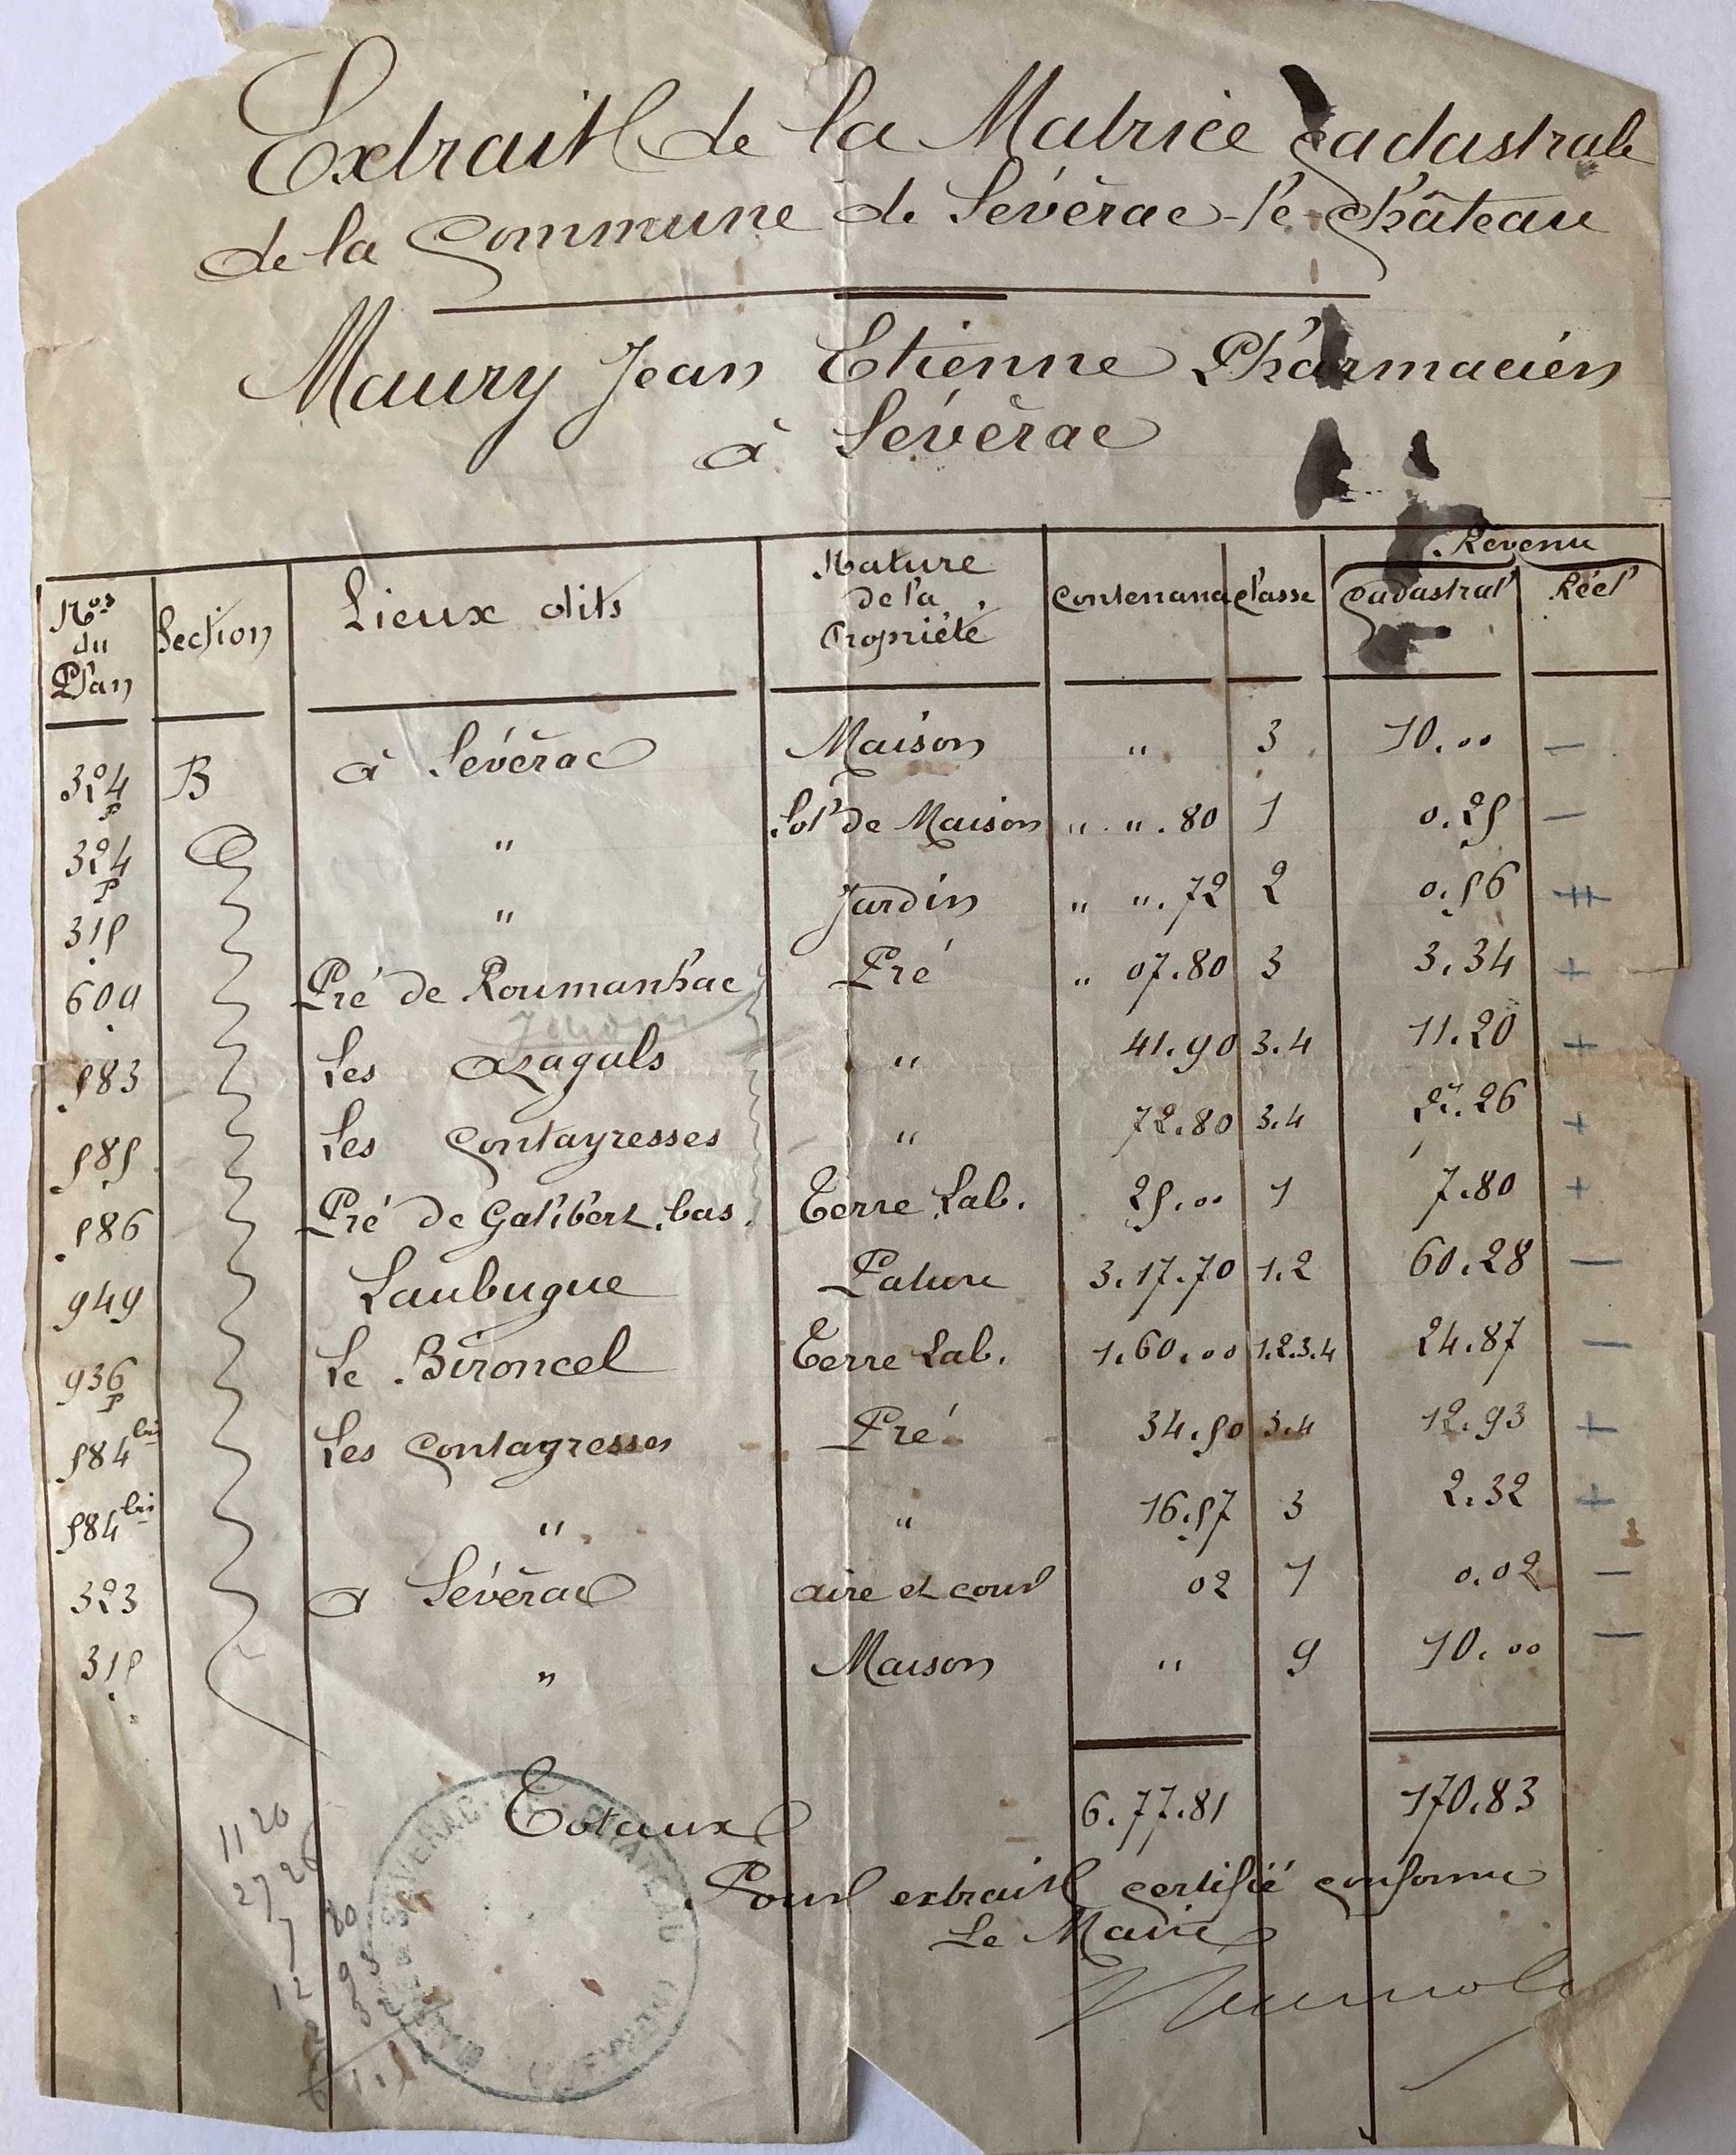 Extrait de la Matrice Cadastrale
de la Commune de Sévérac-le-Château
Maury Jean Etienne Pharmacien
à Sévérac
Nos du Plan | Section | Lieux dits | Nature de la Propriété | Contenance | Classe | Revenu Cadastral | Réel
324 P | B | à Sévérac | Maison | " | 3 | 10.00 | —
324 P | " | Sol de Maison | " " .80 | 1 | 0.25 | —
315 | " | Jardin | " ".72 | 2 | 0.56
600 | Pré de Roumanhac | Pré | " 07.80 | 3 | 3.34 | +
583 | Les azagals | " | 41.90 | 3.4 | 11.20 | +
585 | Les Contayresses | " | 72.80 | 3.4 | 27.26 | +
586 | Pré de Galibert bas. | Terre Lab. | 25.00 | 1 | 7.80 | +
949 | Laubugue | Pature | 3.17.70 | 1.2 | 60.28 | —
936 P | Le Bironcel | Terre Lab. | 1.60.00 | 1.2.3.4 | 24.87 | —
584 bis | Les Contayresses | Pré | 34.50 | 3.4 | 12.93 | +
584 bis | " | " | 16.57 | 3 | 2.32 | +
323 | à Sévérac | aire et cour | 02 | 1 | 0.02 | —
315 | " | Maison | " | 9 | 10.00 | —
Totaux | 6.77.81 | 170.83
Pour extrait certifié conforme
Le Maire
11 20
27 26
7 80
12 93
2 32
61.51
MAIRIE DE SEVERAC-LE-CHATEAU (AVEYRON)